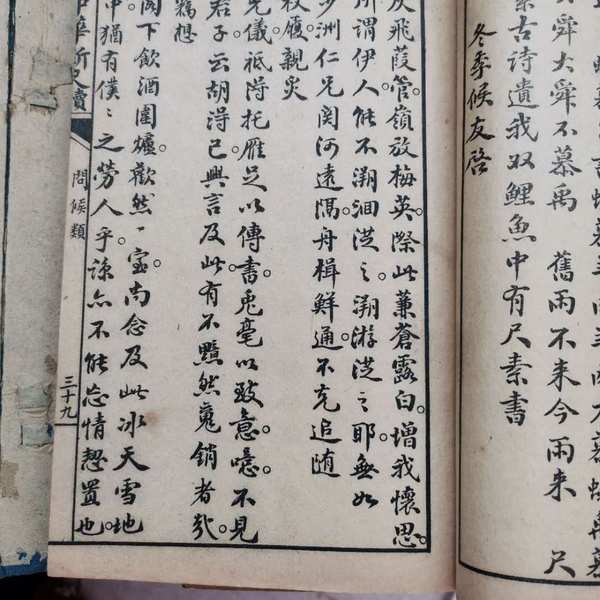 舜大舜不慕禹 舊雨不来今雨来 尺
素古詩遺我双鯉魚中有尺素書
冬季候友啓
灰飛葭管。嶺放梅英。際此蒹蒼露白。增我懷思。
所謂伊人能不溯洄從之溯游從之耶。無如
沙洲仁兄関河遠隅舟楫鮮通不克追随
杖履親炙
光儀祗得托雁足以傳書。兎毫以致意。噫。不見
君子云胡得已。興言及此有不黯然䰟銷者哉。
竊想
閣下飲酒圍爐。歡然一室尚念及此冰天雪地
中猶有僕〻之勞人乎。諒亦不能忘情恝置也。
中華新尺牘
問候類
三十九